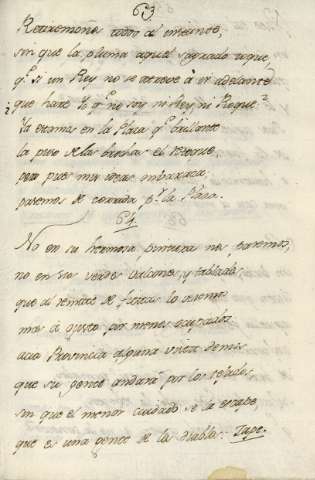 63
Retiremonos todo al instante,
sin que la pluma aquel sagrado toque,
q.e si un Rey no se atreve à ir adelante
que haré Yo q.e no soy ni Rey, ni Roque?
Ya estamos en la Plaza q.e brillante
la puso de las brochas el retoque,
pero pues mis ideas embaraza,
pasemos de corrida p.r la Plaza.
64
No en su hermosa pintura nos paremos,
no en sus verdes balcones, y tablado,
que al remate de fiestas lo
mas a gusto por menos ocupado
Provincia alguna
que su gente andará por los tejados,
sin que el menor cuidado se la escape,
que es una gente de la diabla. Zape.